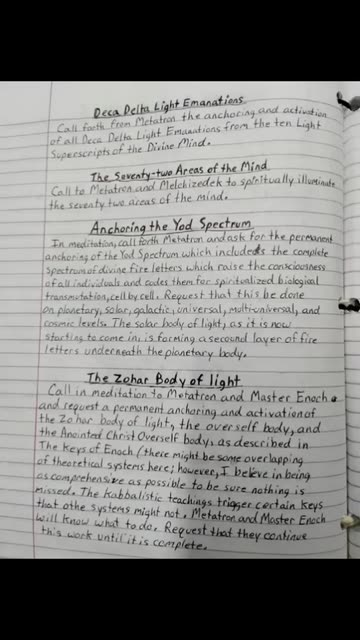 Deca Delta Light Emanations
Call forth from Metatron the anchoring and activation
of all Deca Delta Light Emanations from the ten Light
Superscripts of the Divine Mind.
The Seventy-two Areas of the Mind
Call to Metatron and Melchizedek to spiritually illuminate
the seventy two areas of the mind.
Anchoring the Yod Spectrum
In meditation, call forth Metatron and ask for the permanent
anchoring of the Yod Spectrum which includes the complete
spectrum of divine fire letters which raise the consciousness
of all individuals and codes them for spiritualized biological
transmutation, cell by cell. Request that this be done
on planetary, solar, galactic, universal, multi-universal, and
cosmic levels. The solar body of light, as it is now
starting to come in, is forming a second layer of fire
letters underneath the planetary body.
The Zohar Body of light
Call in meditation to Metatron and Master Enoch
and request a permanent anchoring and activation of
the Zohar body of light, the overself body, and
the Anointed Christ Overself body, as described in
The Keys of Enoch (there might be some overlapping
of theoretical systems here; however, I believe in being
as comprehensive as possible to be sure nothing is
missed. The Kabbalistic teachings trigger certain keys
that othe systems might not. Metatron and Master Enoch
will know what to do. Request that they continue
this work until it is complete.